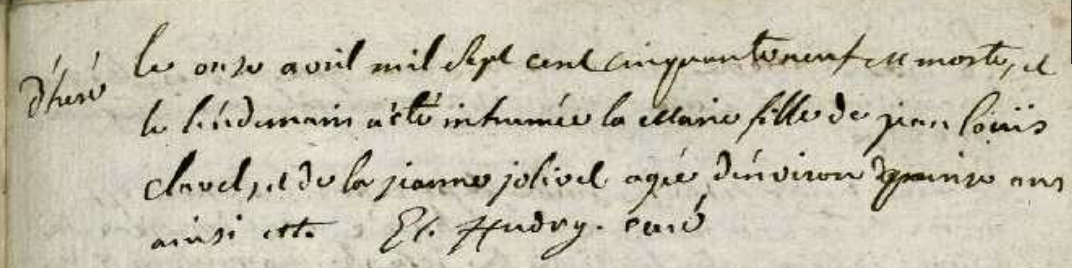 d'heré
le onze avril mil sept cent cinquante neuf est morte, et
le lendemain a été inhumée la Marie fille de jean loüis
clavel, et de la jeanne jolivel agée d'environ quinze ans
ainsi est. Hudry. curé